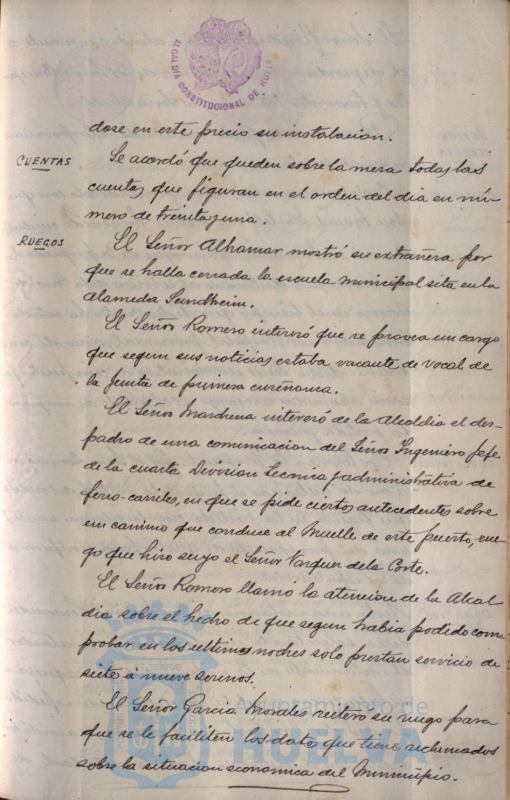 ALCALDIA CONSTITUCIONAL DE HUELVA
dose en este precio su instalacion.
CUENTAS
Se acordó que queden sobre la mesa todas las
cuentas que figuran en el orden del dia en nú-
mero de treinta y una.
RUEGOS
El Señor Alhamar mostró su extrañeza por
que se halla cerrada la escuela municipal sita en la
alameda Sundheim.
El Señor Romero interesó que se provea un cargo
que segun sus noticias estaba vacante de vocal de
la Junta de primera enseñanza.
El Señor Mardena interesó de la Alcaldia el des-
pacho de una comunicacion del Señor Ingeniero Jefe
de la cuarta Division Tecnica y administrativa de
ferro-carriles, en que se pide ciertos antecedentes sobre
un camino que conduce al Muelle de este puerto, rue-
go que hizo suyo el Señor Vazquez de la Corte.
El Señor Romero llamó la atencion de la Alcal
dia sobre el hecho de que segun habia podido com
probar en las ultimas noches solo prestan servicio de
siete a nueve serenos.
El Señor Garcia Morales reitero su ruego para
que se le faciliten los datos que tiene reclamados
sobre la situacion economica del Municipio.
Ayuntamiento de
HUELVA